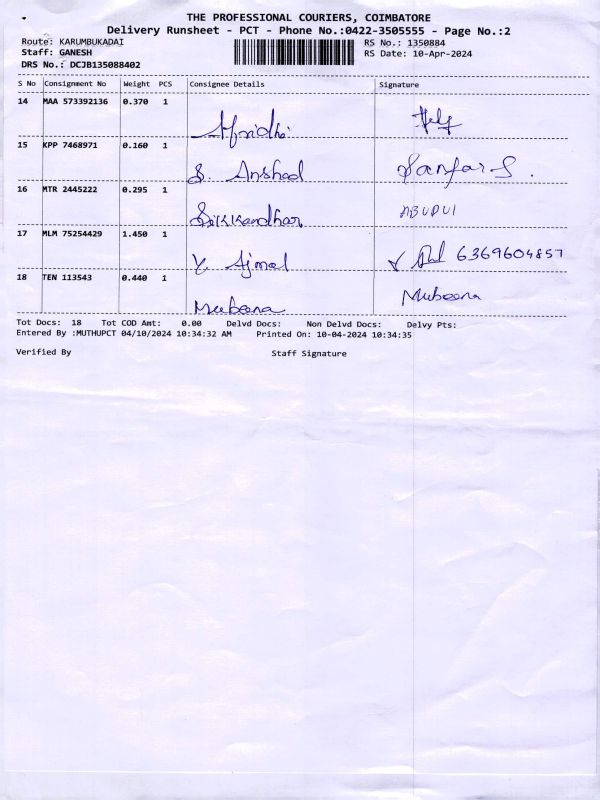 THE PROFESSIONAL COURIERS, COIMBATORE
Delivery Runsheet - PCT - Phone No.:0422-3505555 - Page No.:2
Route: KARUMBUKADAI RS No.: 1350884
Staff: GANESH RS Date: 10-Apr-2024
DRS No.: DCJB135088402
S No Consignment No Weight PCS Consignee Details Signature
14 MAA 573392136 0.370 1
Afridhi
15 KPP 7468971 0.160 1
S. Arshad
16 MTR 2445222 0.295 1
Sikkandhar ABUDUl
17 MLM 75254429 1.450 1
Y. Ajmal 6369604857
18 TEN 113543 0.440 1
Mubeena Mubeena
Tot Docs: 18 Tot COD Amt: 0.00 Delvd Docs: Non Delvd Docs: Delvy Pts:
Entered By :MUTHUPCT 04/10/2024 10:34:32 AM Printed On: 10-04-2024 10:34:35
Verified By Staff Signature